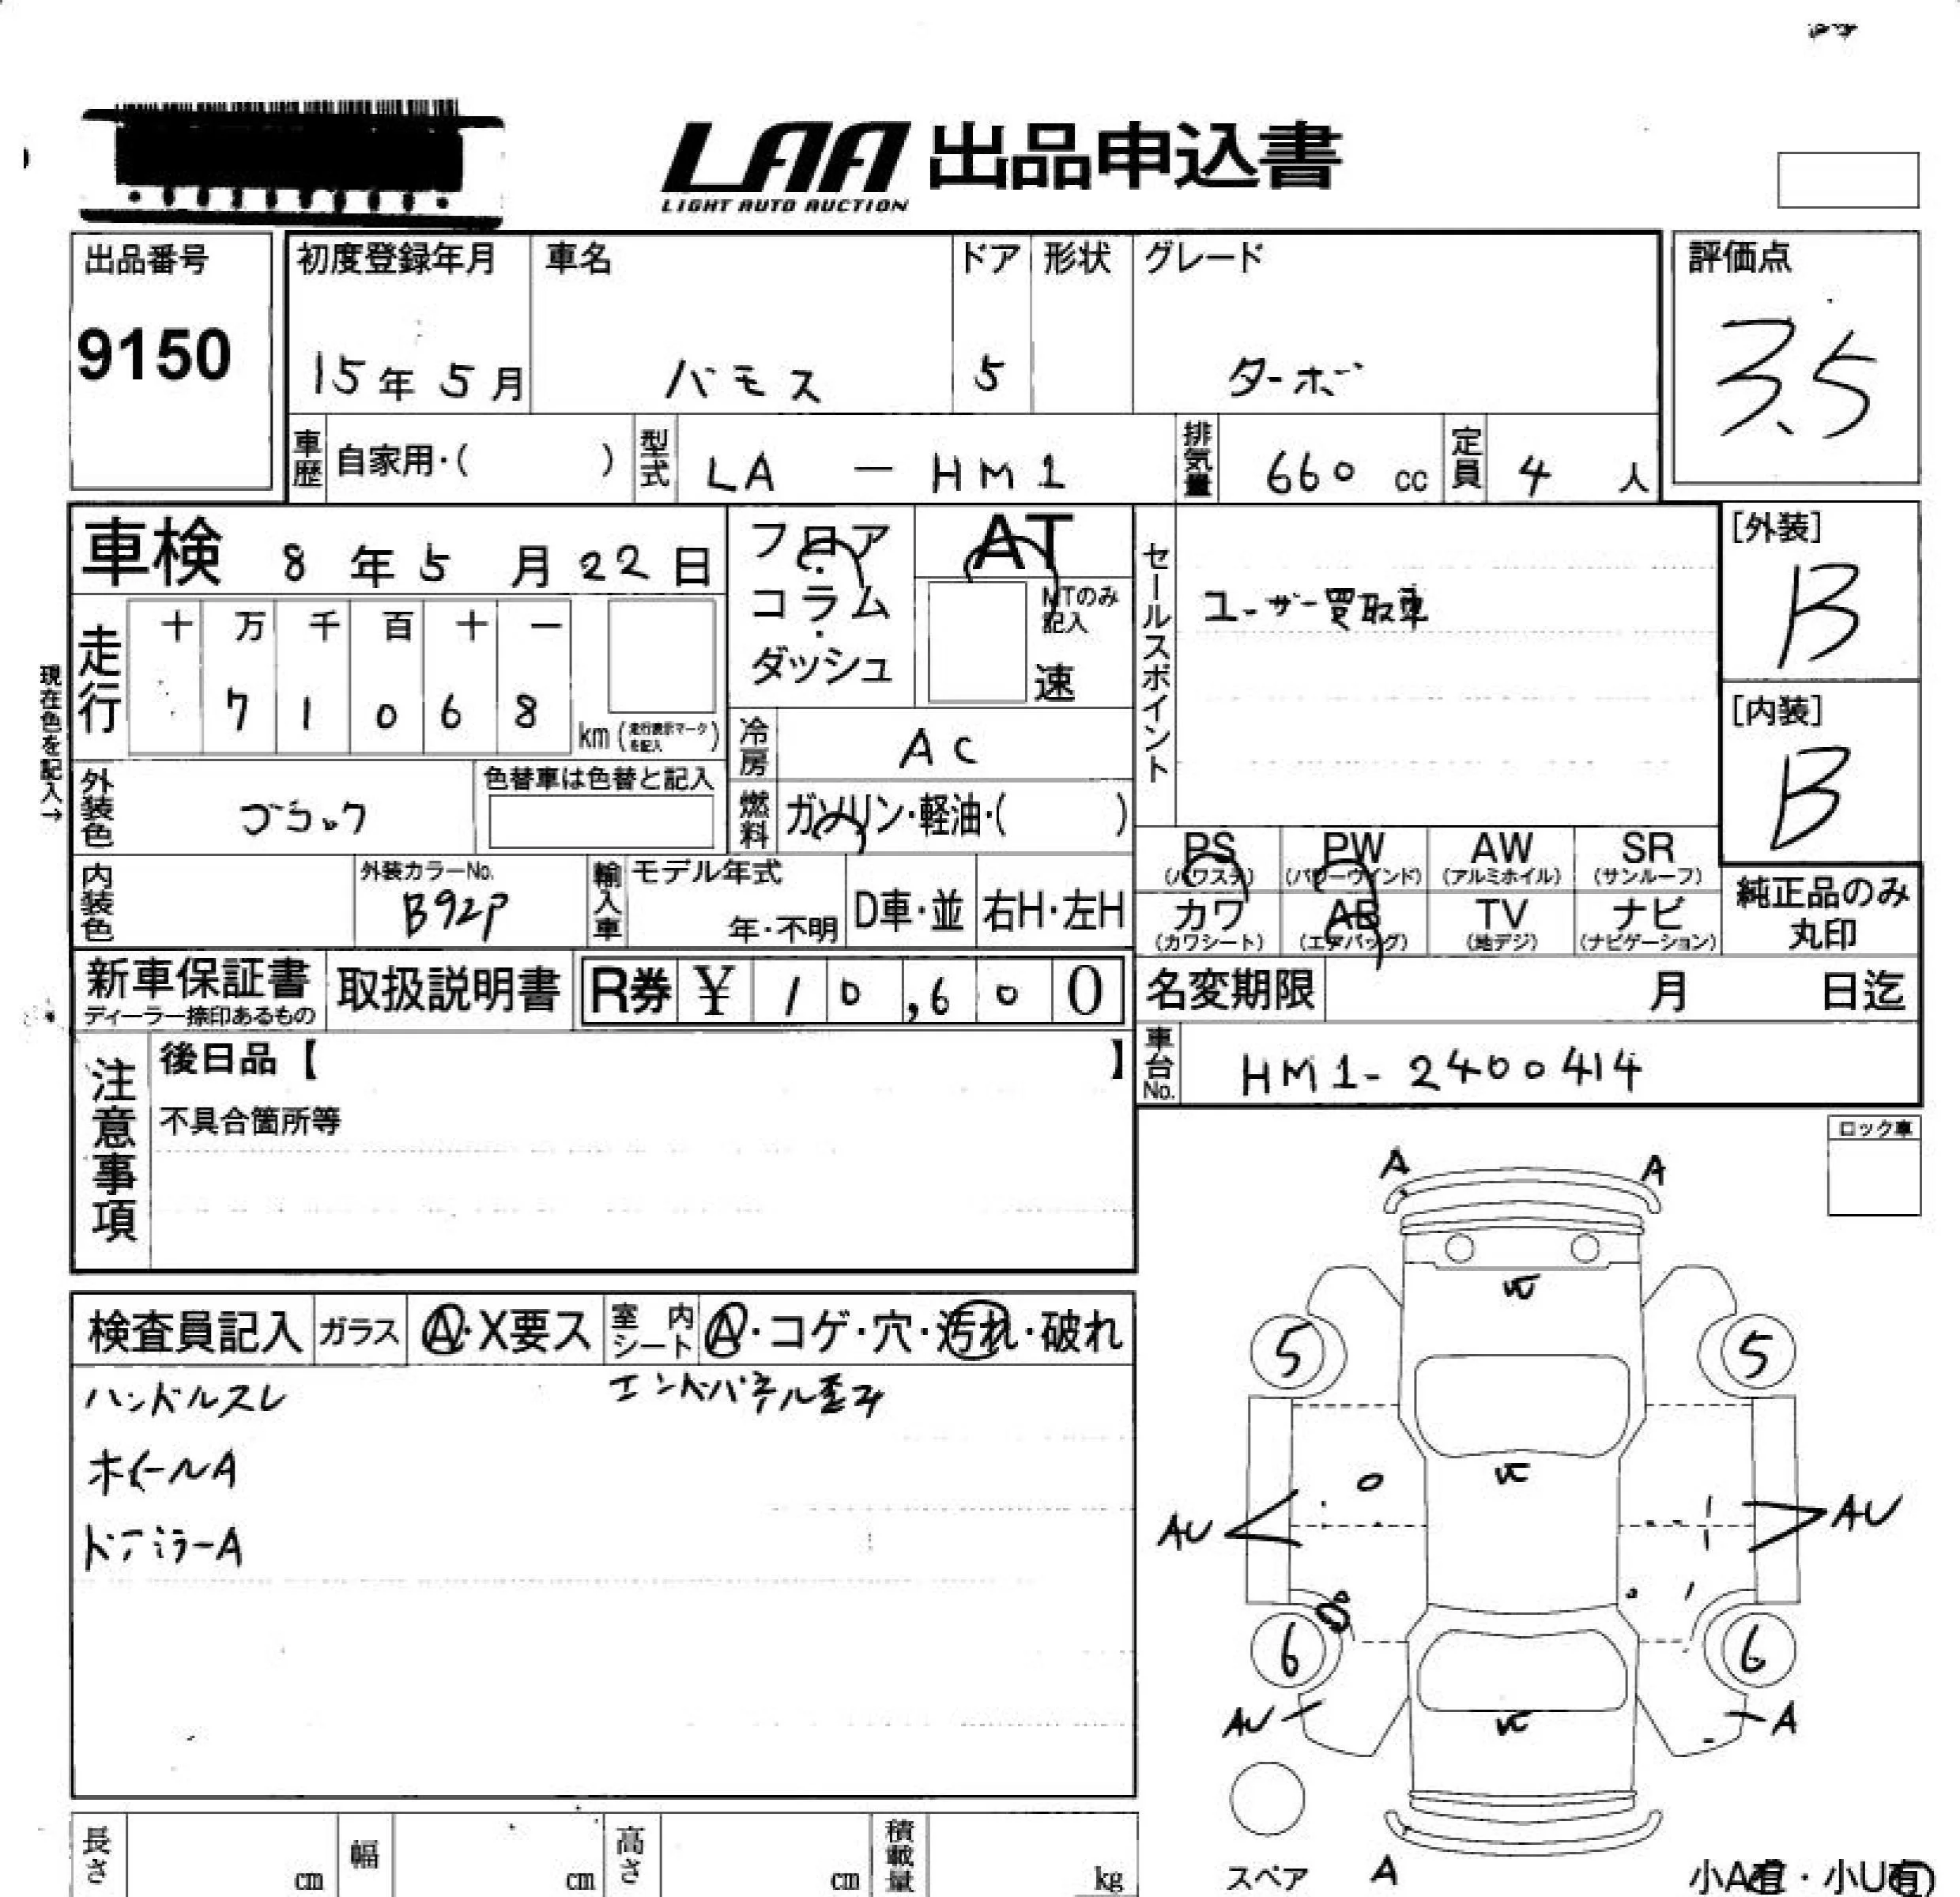 LAA 出品申込書
LIGHT AUTO AUCTION
出品番号
9150
初度登録年月
15年5月
車名
バモス
ドア
5
形状
グレード
ターボ
評価点
3.5
車歴 自家用・( )
型式 LA - HM1
排気量 660 cc
定員 4 人
車検 8年5月22日
フロア
コラム
ダッシュ
AT
MTのみ記入
速
セールスポイント
ユーザー買取車
[外装]
B
[内装]
B
現在色を記入→
走行
十 万 千 百 十 一
7 1 0 6 8
km (走行表示マークを記入)
冷房 AC
燃料 ガソリン・軽油・( )
外装色 ブラック
色替車は色替と記入
内装色
外装カラーNo.
B92P
輸入車
モデル年式
年・不明
D車・並
右H・左H
PS (パワステ)
PW (パワーウインド)
AW (アルミホイル)
SR (サンルーフ)
カワ (カワシート)
AB (エアバッグ)
TV (地デジ)
ナビ (ナビゲーション)
純正品のみ
丸印
新車保証書
ディーラー捺印あるもの
取扱説明書
R券 ¥ 10,600
名変期限 月 日迄
車台No. HM1-2400414
注意事項
後日品【 】
不具合箇所等
ロック車
検査員記入
ガラス A・X要ス
室内シート A・コゲ・穴・汚れ・破れ
ハンドルスレ
エンドパネル歪み
ホイールA
ドアミラーA
A
A
5
5
AU
AU
6
6
AU
A
スペア
A
小A有・小U有
長さ cm
幅 cm
高さ cm
積載量 kg